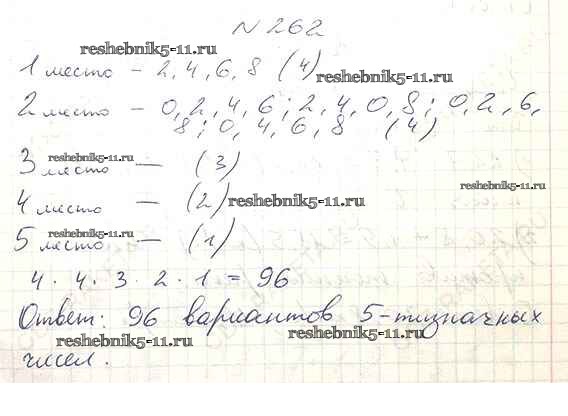 N 262
reshebnik5-11.ru
1 место - 2, 4, 6, 8 (4)
reshebnik5-11.ru
2 место - 0, 2, 4, 6; 2, 4, 0, 8; 0, 2, 6,
8; 0, 4, 6, 8 (4)
reshebnik5-11.ru
3 место - (3)
reshebnik5-11.ru
4 место - (2)
reshebnik5-11.ru
reshebnik5-11.ru
5 место - (1)
4 · 4 · 3 · 2 · 1 = 96
Ответ: 96 вариантов 5-тизначных
reshebnik5-11.ru
reshebnik5-11.ru
чисел.